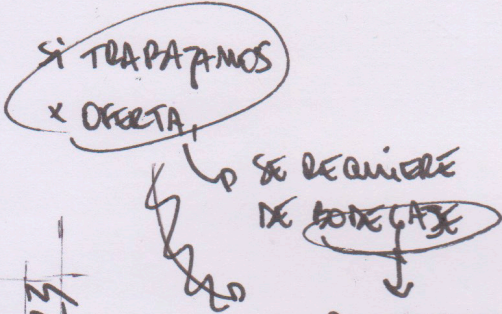 Si TRABAJAMOS
x OFERTA,
SE REQUIERE
DE BODEGAJE
23